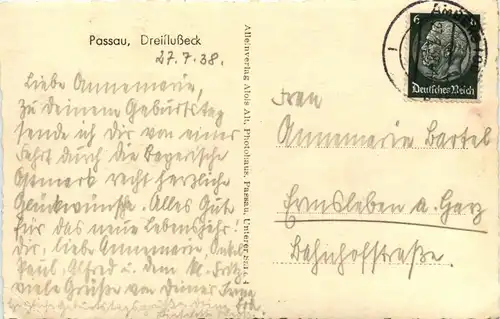 Passau, Dreiflußeck
27.7.38.
Liebe Annemarie,
Zu deinem Geburtstag
sende ich dir von einer
Fahrt durch die Bayerische
Ostmark recht herzliche
Glückwünsche. Alles Gute
für das neue Lebensjahr!
Dir, liebe Annemarie, Onkel
Paul, Alfred u. dem kl. Fritz
viele Grüße von Deiner
Alleinverlag Alois Alt, Photohaus, Passau, Unterer Sand 4
6 6
Deutsches Reich
Frau
Annemarie Bartel
Ermsleben a. Harz
Bahnhofstraße.